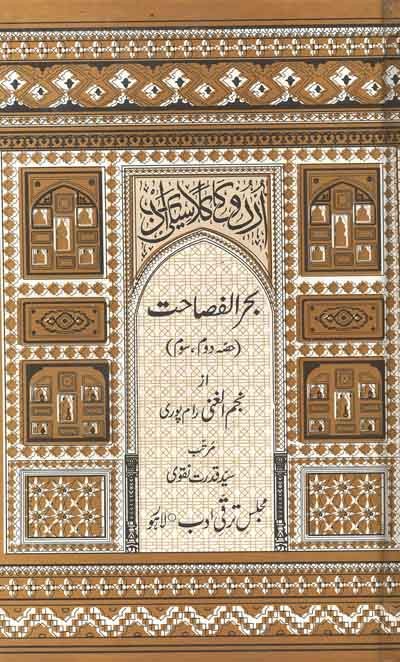 اردو کا کلاسیکی ادب
بحر الفصاحت
(حصہ دوم، سوم)
از
نجم الغنی رام پوری
مرتب
سید قدرت نقوی
مجلس ترقی ادب ○ لاہور